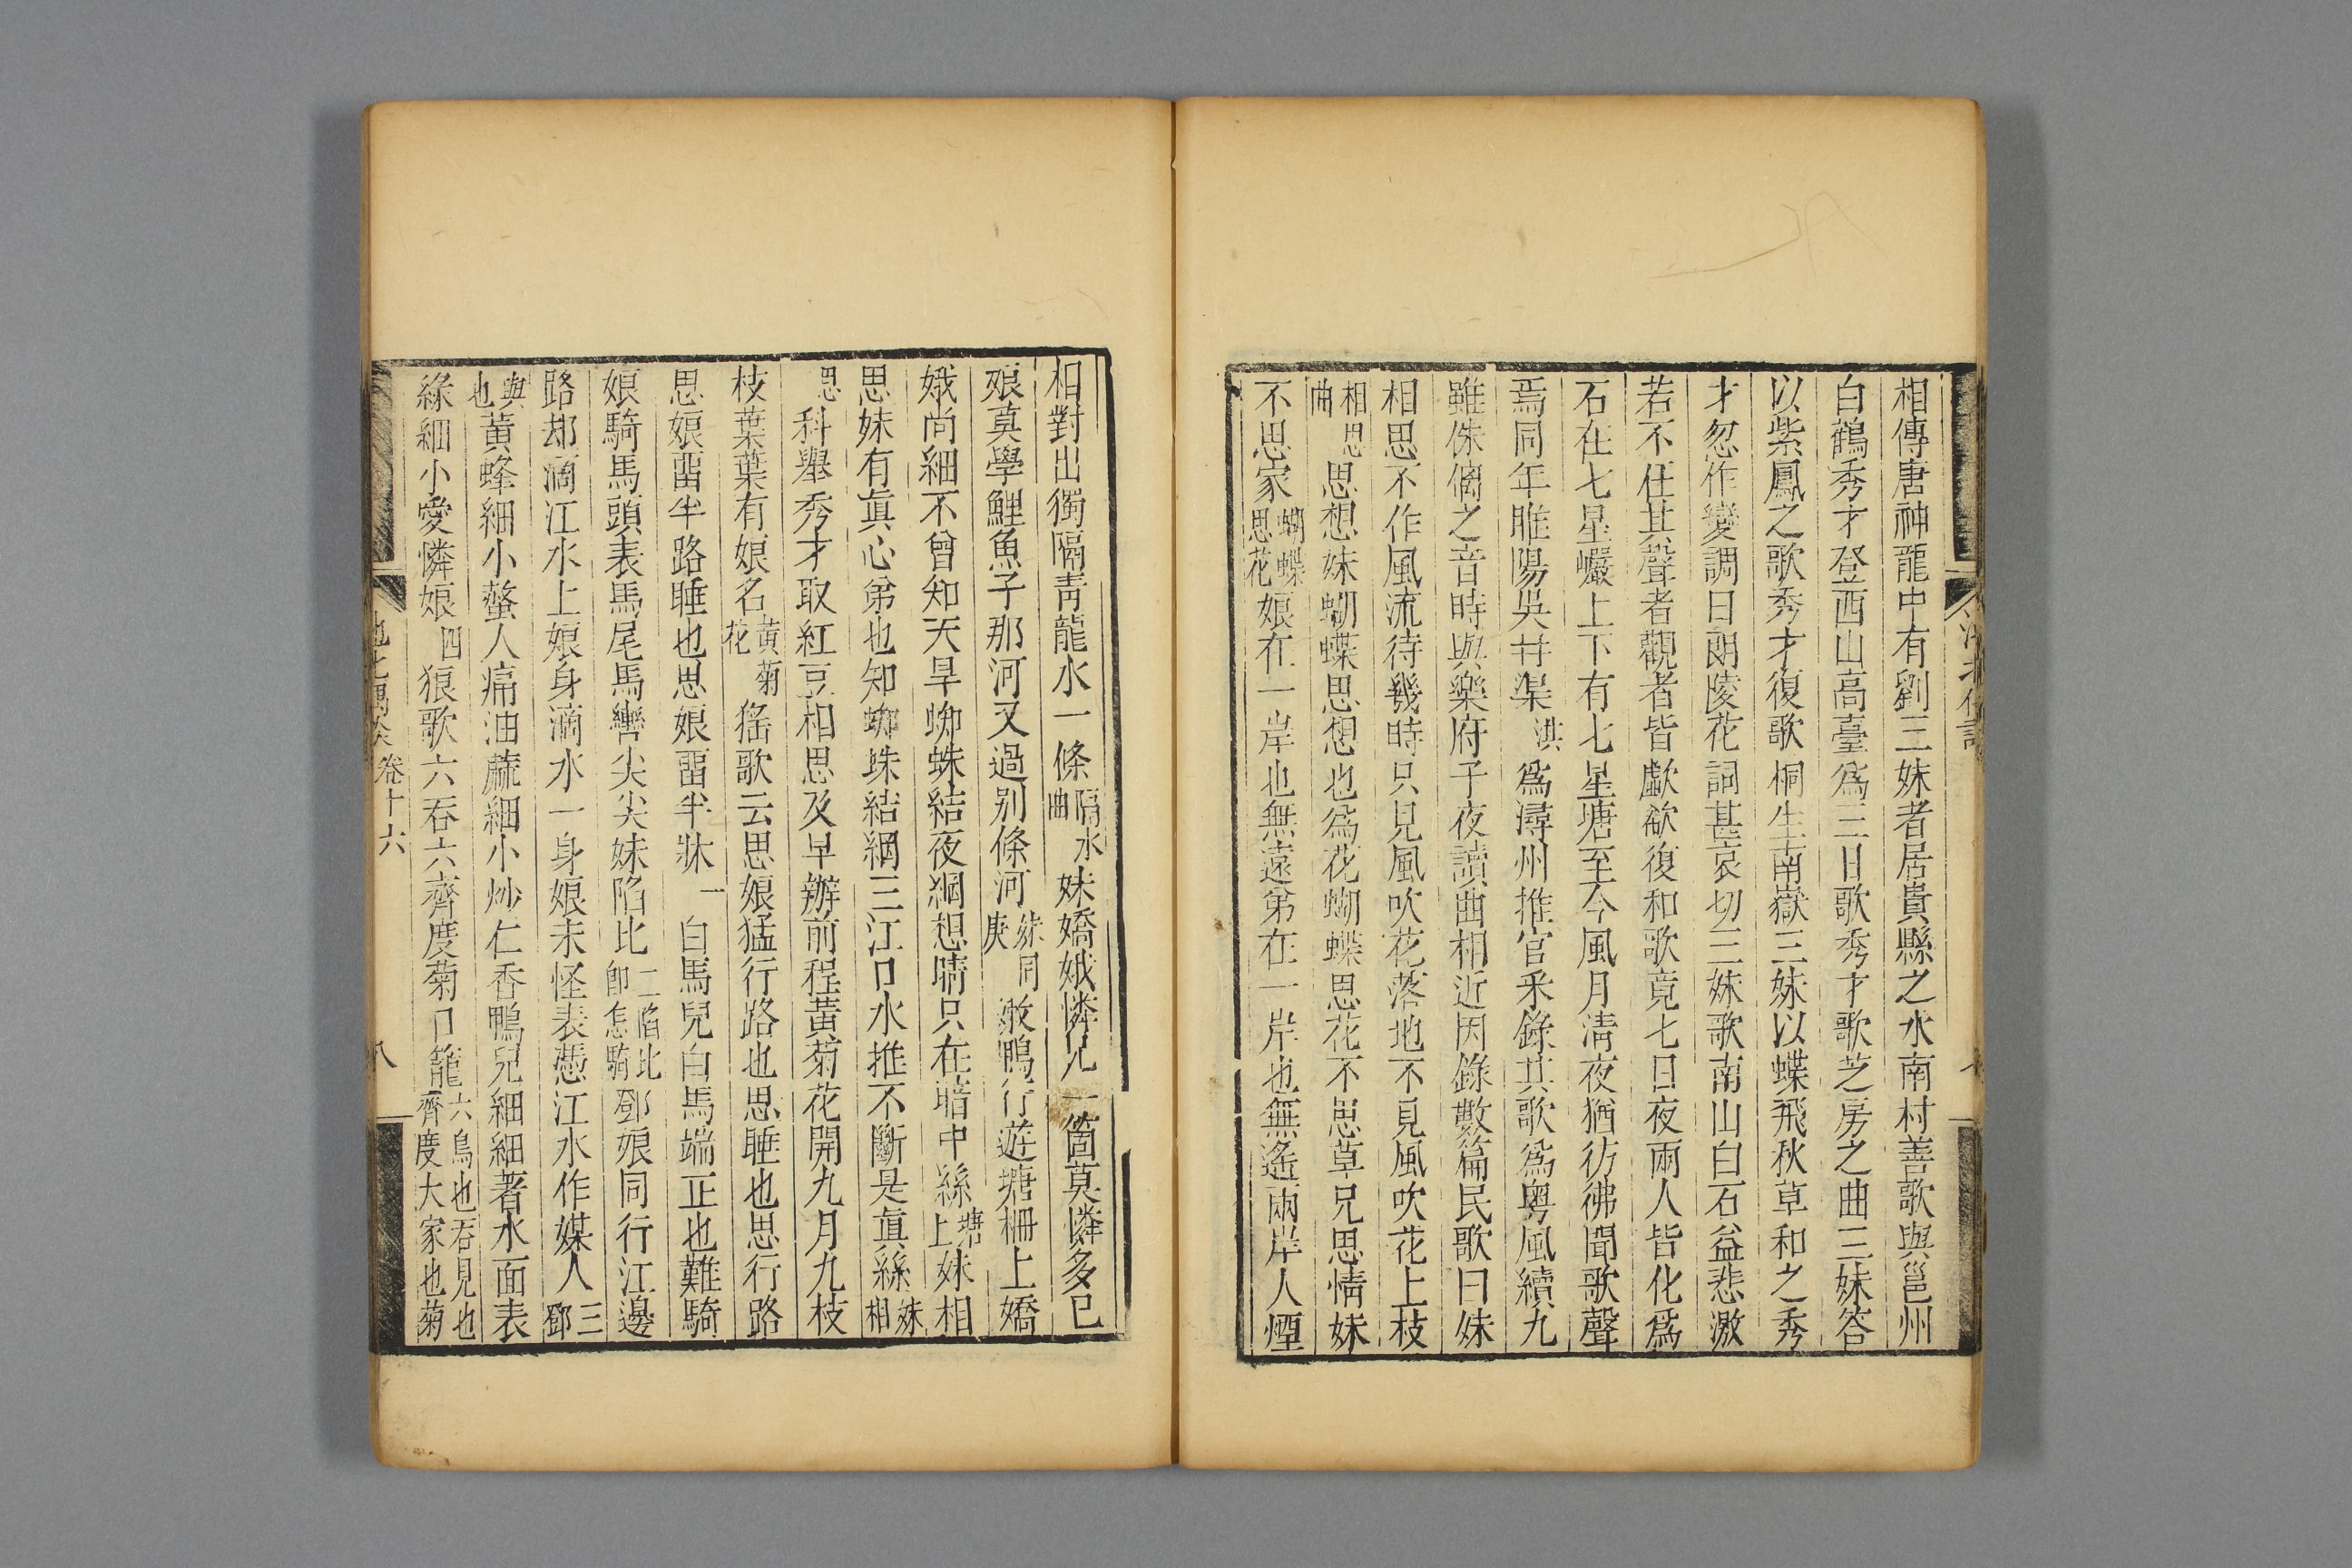 相傳唐神龍中有劉三妹者居貴縣之水南村善歌與邕州
白鶴秀才登西山高臺爲三日歌秀才歌芝房之曲三妹答
以紫鳳之歌秀才復歌桐生南嶽三妹以蝶飛秋草和之秀
才忽作變調曰朗陵花詞甚哀切三妹歌南山白石益悲激
若不任其聲者觀者皆歔欷復和歌竟七日夜兩人皆化爲
石在七星巖上下有七星塘至今風月清夜猶彷彿聞歌聲
焉同年睢陽吳冉渠淇爲潯州推官采錄其歌爲粤風續九
雖侏𠌯之音時與樂府子夜讀曲相近因錄數篇民歌曰妹
相思不作風流待幾時只見風吹花落地不見風吹花上枝
相思曲思想妹蝴蝶思想也爲花蝴蝶思花不思草兄思情妹
不思家蝴蝶思花娘在一岸也無遠弟在一岸也無遙兩岸人煙
相對出獨隔青龍水一條隔水曲妹嬌娥憐兄一箇莫憐多已
娘莫學鯉魚子那河又過别條河妹同庚歲鴨行遊塘柵上嬌
娥尚細不曾知天旱蜘蛛結夜網想晴只在暗中絲塘上妹相
思妹有眞心弟也知蜘蛛結網三江口水推不斷是眞絲妹相
思科舉秀才取紅豆相思及早辦前程黃菊花開九月九枝
枝葉葉有娘名黃菊花猺歌云思娘猛行路也思睡也思行路
思娘畱半路睡也思娘畱半牀一白馬兒白馬端正也難騎
娘騎馬頭表馬尾馬轡尖尖妹陷比二陷比卽怎騎鄧娘同行江邊
路却滴江水上娘身滴水一身娘未怪表憑江水作媒人三鄧
與也黃蜂細小螫人痛油蔴細小炒仁香鴨兒細細著水面表
緣細小愛憐娘四狼歌六吞六齊度菊口籠六鳥也吞見也齊度大家也菊
卷十六
八